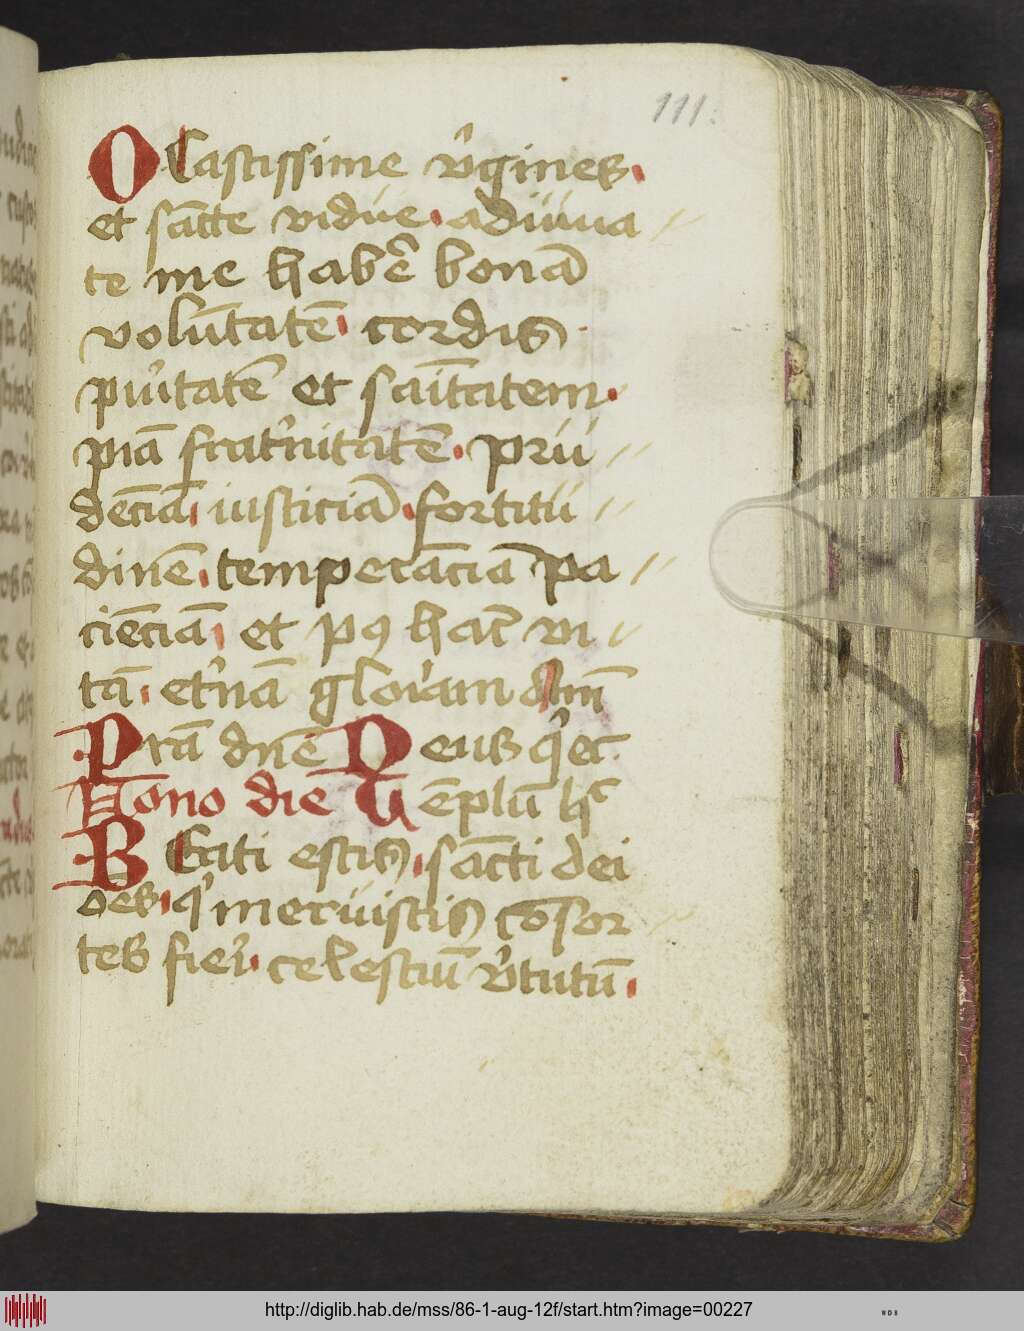 111.
O Castissime v̉gines.
et sc̄tte vidue. adiuua
te me habẽ bonā
voluntatē cordis
puritatē et sanītatem.
piā fratnitatē. pru
dēciā iusticiā. fortitu
dinē. temperācia pa
ciēciā. et pꝰ hāc vi
tā. etnā gloriam Am̄
Prā dn̄e Deus q ec
Nono die Tēplū hc
BEati estis. sācti dei
oēs. qi meruistis cōsor
tes fieri. celestiū v̉tutū.
http://diglib.hab.de/mss/86-1-aug-12f/start.htm?image=00227